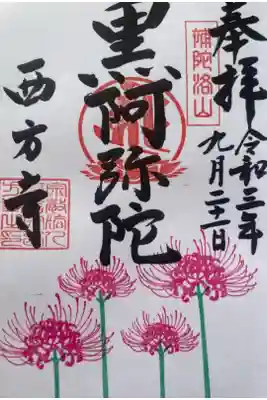 奉拝
補陀洛山
令和三年
九月二十一日
黒阿弥陀
西方寺